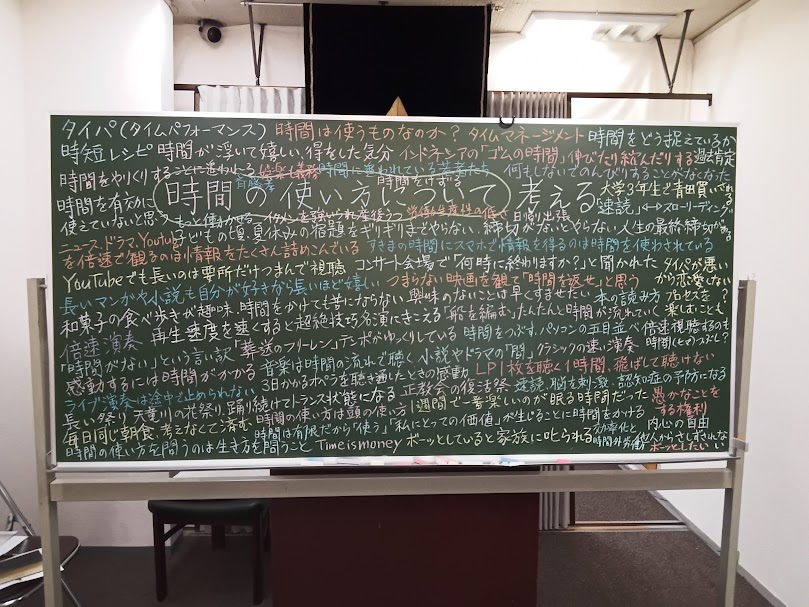 タイパ(タイムパフォーマンス) 時間は使うものなのか? タイムマネージメント 時間をどう捉えているか
時短レシピ 時間が浮いて嬉しい 得をした気分 インドネシアの「ゴムの時間」伸びたり縮んだりする 過去肯定
時間をやりくりすることに追われる 娯楽も義務 時間に追われている若者たち 何もしないでのんびりすることがなくなった
斎藤孝 時間をけずる
時間の使い方について 考える
大学3年生で青田買いされる
時間を有効に
使えていないと思う もっと働かせる 労働生産性の低さ 日帰り出張
「速読」↔スローリーディング
子どもの頃、夏休みの宿題をギリギリまでやらない 締切がないとやらない 人生の最終締切がある
ニュース、ドラマ、Youtube
を倍速で観るのは情報をたくさん詰めこんでいる すきまの時間にスマホで情報を得るのは時間を使わされている
YouTubeでも長いのは要所だけつまんで視聴 コンサート会場で「何時に終わりますか?」と聞かれた タイパが悪い
から恋愛しない
長いマンガや小説も自分が好きなら長いほど嬉しい つまらない映画を観て「時間を返せ」と思う
和菓子の食べ歩きが趣味、時間をかけても苦にならない 興味のないことは早くすませたい 本の読み方 プロセスを
楽しむことも
倍速演奏 再生速度を速くすると超絶技巧名演にきこえる 「舟を編む」たんたんと時間が流れていく
「時間がない」という言い訳 「葬送のフリーレン」テンポがゆっくりしている 時間をつぶす、パソコンの五目並べ 倍速視聴するのも
感動するには時間がかかる 音楽は時間の流れで聴く 小説やドラマの「間」 クラシックの速い演奏
3日かかるオペラを聴き通したときの感動 LP1枚を聴く1時間、飛ばして聴けない
ライブ演奏は途中で止められない
長い祭り 天竜川の花祭り、踊り続けてトランス状態になる 正教会の復活祭 速読、脳を刺激、認知症の予防になる
毎日同じ朝食、考えなくて済む 時間の使い方は頭の使い方 1週間で一番楽しいのが眠る時間だった 愚かなことを
する権利
時間は有限だから「使う」「私にとっての価値」が生じることに時間をかける 内心の自由
時間の使い方を問うのは生き方を問うこと Time is money ボーッとしていると家族に叱られる 効率化と
時間外労働 他人からさしずされない
ボーッとしたい